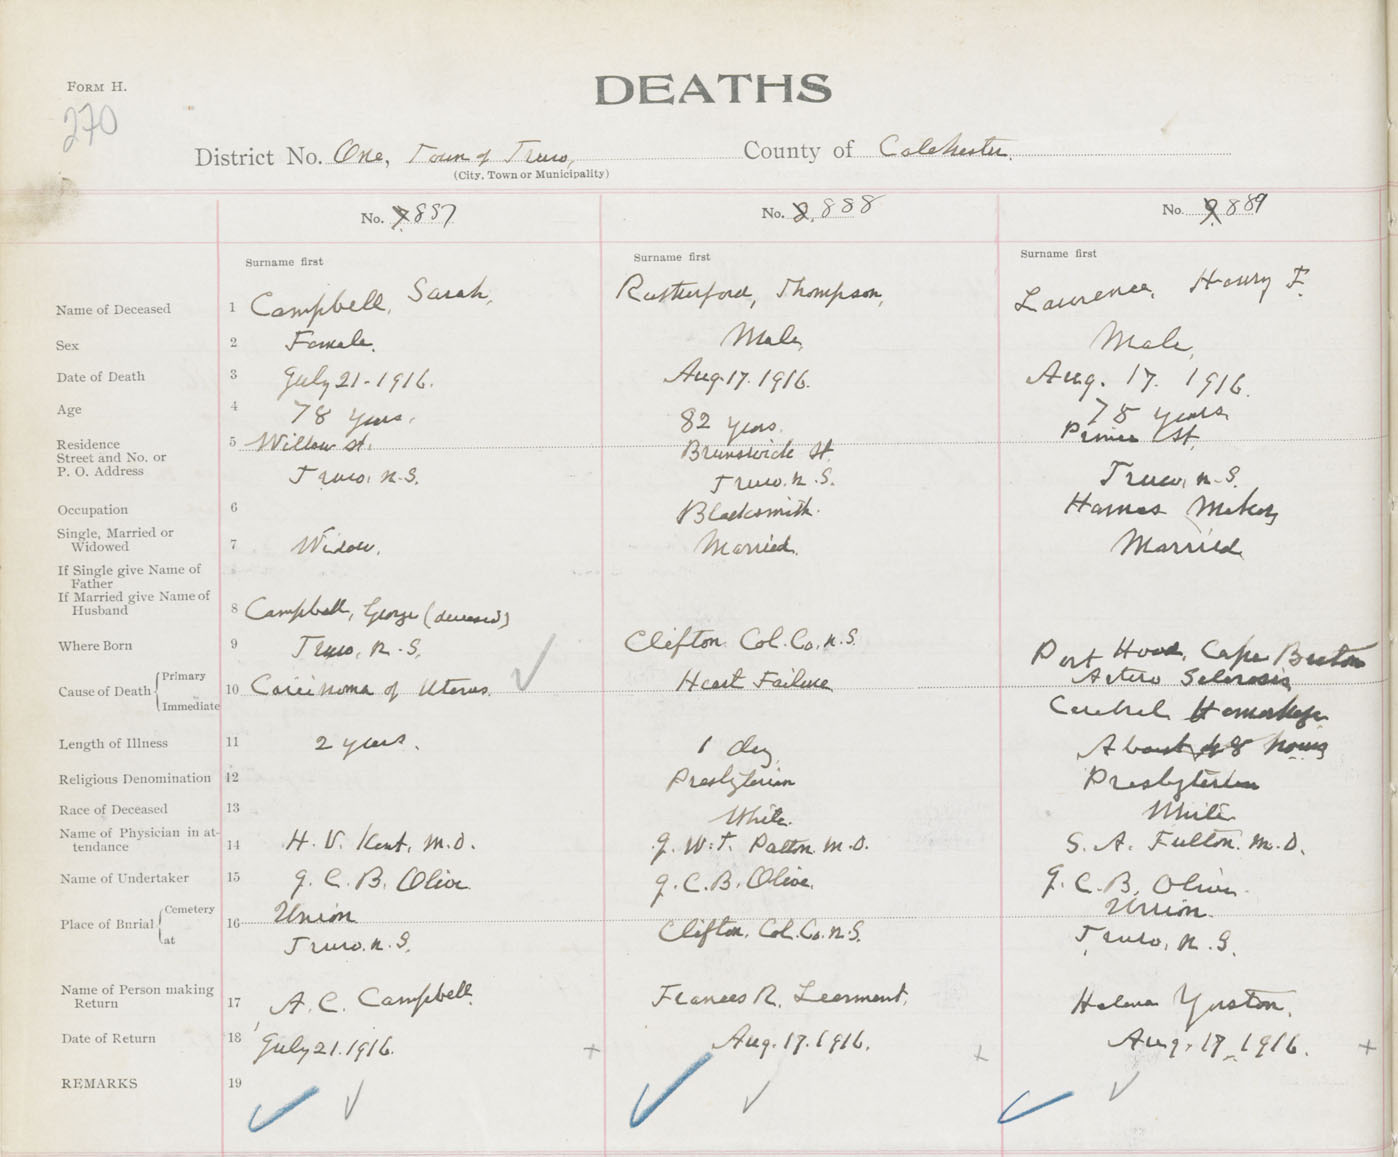 FORM H.
270
DEATHS
District No. One, Town of Truro,
County of Colchester.
(City, Town or Municipality)
No. 887
No. 888
No. 889
Surname first
Surname first
Surname first
Name of Deceased 1 Campbell, Sarah, Rutherford, Thompson, Lawrence, Henry F.
Sex 2 Female. Male, Male,
Date of Death 3 July 21-1916. Aug. 17. 1916. Aug. 17. 1916.
Age 4 78 years. 82 years. 78 years
Residence 5 Willow St. Brunswick St. Prince St.
Street and No. or
P. O. Address Truro, N.S. Truro. N.S. Truro, N.S.
Occupation 6 Blacksmith. Harness Maker
Single, Married or
Widowed 7 Widow. Married. Married
If Single give Name of
Father
If Married give Name of
Husband 8 Campbell, George (deceased)
Where Born 9 Truro, N.S. Clifton Col. Co. N.S. Port Hood, Cape Breton
Cause of Death Primary 10 Carcinoma of Uterus. Heart Failure Artero Sclerosis
Immediate Cerebral Hemorhage
Length of Illness 11 2 years. 1 day About 48 hours
Religious Denomination 12 Presbyterian Presbyterian
Race of Deceased 13 White. White
Name of Physician in at-
tendance 14 H. V. Kent, M.D. J. W. T. Patton M.D. S. A. Fulton. M.D.
Name of Undertaker 15 J. C. B. Olive J. C. B. Olive. J. C. B. Olive
Place of Burial Cemetery 16 Union Union.
at Truro. N.S. Clifton, Col. Co. N.S. Truro, N.S.
Name of Person making
Return 17 A. C. Campbell. Frances R. Learment. Helena Yuston.
Date of Return 18 July 21. 1916. Aug. 17. 1916. Aug. 17. 1916.
REMARKS 19